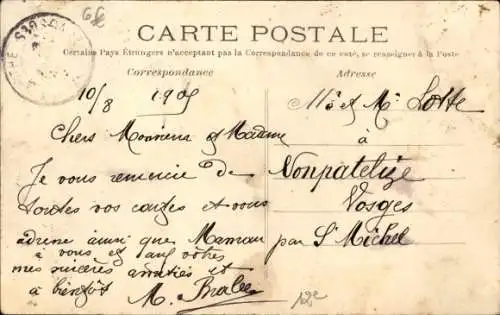 CARTE POSTALE
Certains Pays Étrangers n'acceptant pas la Correspondance de ce coté, se renseigner à la Poste
Correspondance
Adresse
10/8 1905
Chers Monsieur et Madame
Je vous remercie de
toutes vos cartes et vous
adresse ainsi que Maman
à vous et aux vôtres
mes sincères amitiés et
à bientôt
M.
Mr et Me Lotte
à
Nonpatelize
Vosges
par St Michel
12e